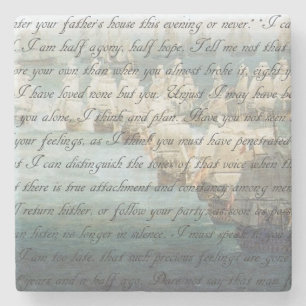 nter your father's house this evening or never." "I ca
, I am half agony, half hope. Tell me not that
ore your own than when you almost broke it, eight y
I have loved none but you. Unjust I may have be
you alone, I think and plan. Have you not seen
your feelings, as I think you must have penetrated
t I can distinguish the tones of that voice when th
t there is true attachment and constancy among me
I return hither, or follow your party, as soon as pos
can listen no longer in silence. I must speak to you
I am too late, that such precious feelings are gone
years and a half ago. Dare not say that man